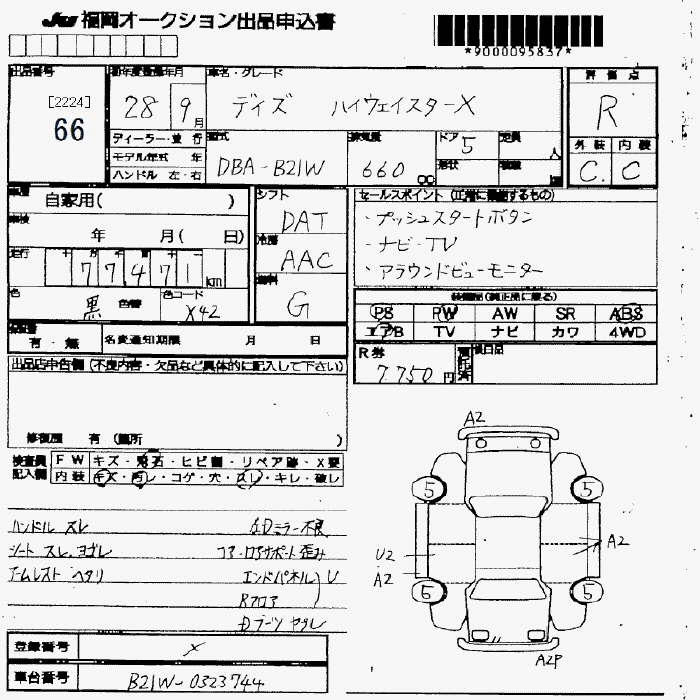 JU 福岡オークション出品申込書
*9000095837*
出品番号
[2224]
66
初年度登録年月
28 9月
車名・グレード
デイズ ハイウェイスターX
評価点
R
ディーラー・並行
モデル年式 年
ハンドル 左・右
型式
DBA-B21W
排気量
660 cc
ドア
5
形状
定員
人
積載
外装 内装
C C
車歴
自家用( )
車検
年 月( 日)
走行
77471 km
色
黒
色替
色コード
X42
シフト
DAT
冷房
AAC
燃料
G
セールスポイント (正常に機能するもの)
・プッシュスタートボタン
・ナビ・TV
・アラウンドビューモニター
装備品(純正品に限る)
PS PW AW SR ABS
エアB TV ナビ カワ 4WD
有・無
名変通知期限 月 日
R券
7750円
後日品
出品店申告欄(不良内容・欠品など具体的に記入して下さい)
修復歴 有 (箇所 )
検査員記入欄
FW キズ・飛石・ヒビ割・リペア跡・X要
内装 キズ・汚レ・コゲ・穴・スレ・キレ・破レ
ハンドル スレ
シート スレ、ヨゴレ
アームレスト ヘタリ
ミラー不良
コアサポート歪み
エンドパネル U
Rフロア
登録番号
X
車台番号
B21W-0323744
A2
5 5
U2
A2
A2
6 5
A2P